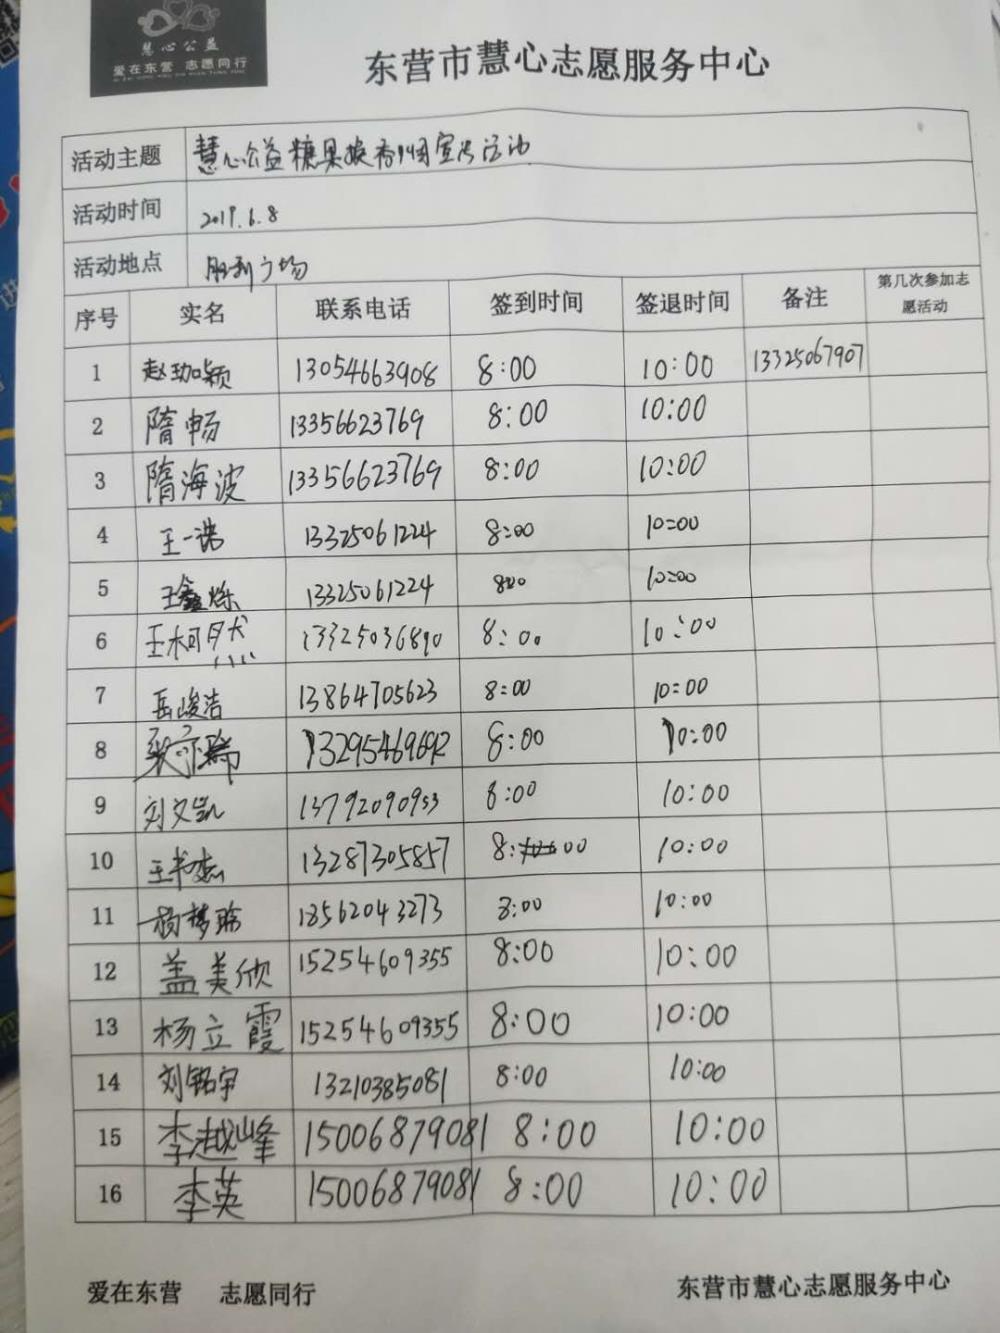 慧心公益
爱在东营 志愿同行
东营市慧心志愿服务中心
活动主题 慧心公益糖果 活动
活动时间 2019.6.8
活动地点 胜利广场
序号 实名 联系电话 签到时间 签退时间 备注 第几次参加志愿活动
1 赵珈颖 13054663908 8:00 10:00 13325067907
2 隋畅 13356623769 8:00 10:00
3 隋海波 13356623769 8:00 10:00
4 王一诺 13325061224 8:00 10:00
5 王鑫烁 13325061224 8:00 10:00
6 王柯然 13325036890 8:00 10:00
7 岳峻浩 13864705623 8:00 10:00
8 8:00 10:00
9 刘文凯 13792090953 8:00 10:00
10 王书 13287305857 8:00 10:00
11 杨梦 18562043273 8:00 10:00
12 盖美欣 15254609355 8:00 10:00
13 杨立霞 15254609355 8:00 10:00
14 刘铭宇 13210385081 8:00 10:00
15 李越峰 15006879081 8:00 10:00
16 李英 15006879081 8:00 10:00
爱在东营 志愿同行 东营市慧心志愿服务中心